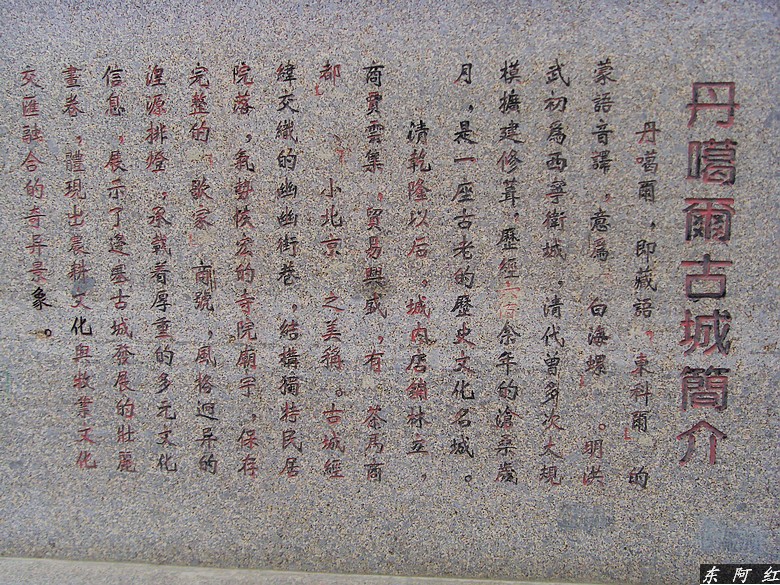 丹噶爾古城簡介
丹噶爾，即藏語，東科爾 的
蒙語音譯，意為 白海螺 。明洪
武初為西寧衛城，清代曾多次大規
模擴建修葺，歷經六百余年的滄桑歲
月，是一座古老的歷史文化名城。
清乾隆以后，城內店鋪林立，
商賈雲集，貿易興盛，有 茶馬商
都 、 小北京 之美稱。古城經
緯交織的幽幽街巷，結構獨特民居
院落，氣勢恢宏的寺院廟宇，保存
完整的 歌家 商號，風格迥异的
湟源排燈，承載着厚重的多元文化
信息，展示了邊塞古城發展的壯麗
畫卷，體現出農耕文化與牧業文化
交匯融合的奇异景象。
东阿红